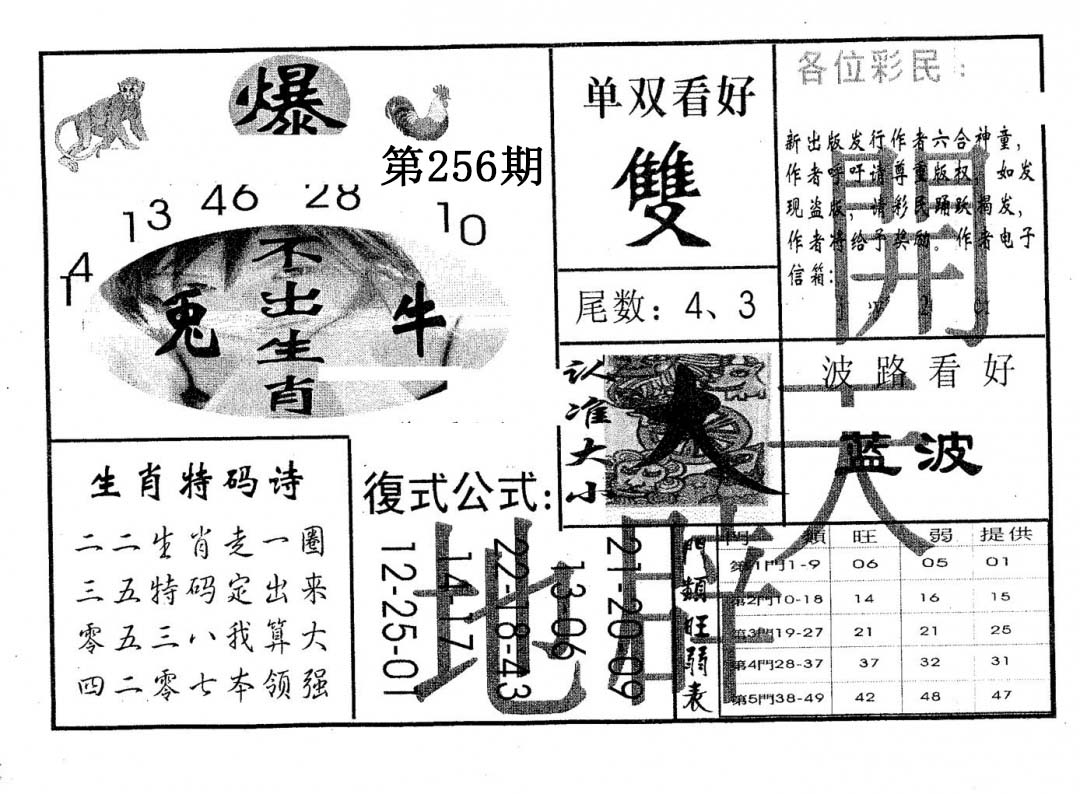 爆
第256期
14 13 46 28 10
不出生肖
兔
牛
单双看好
雙
尾数：4、3
各位彩民：
新出版发行作者六合神童，
作者呼吁请尊重版权，如发
现盗版，请彩民踊跃揭发，
作者将给予奖励。作者电子
信箱：
開
认准大小
大
波路看好
蓝波
天
生肖特码诗
二二生肖走一圈
三五特码定出来
零五三八我算大
四二零七本领强
復式公式：
12-25-01
14-17
22-18-43
13-06
21-20-09
地
門類旺弱表
門 類 旺 弱 提供
第1門1-9 06 05 01
第2門10-18 14 16 15
第3門19-27 21 21 25
第4門28-37 37 32 31
第5門38-49 42 48 47